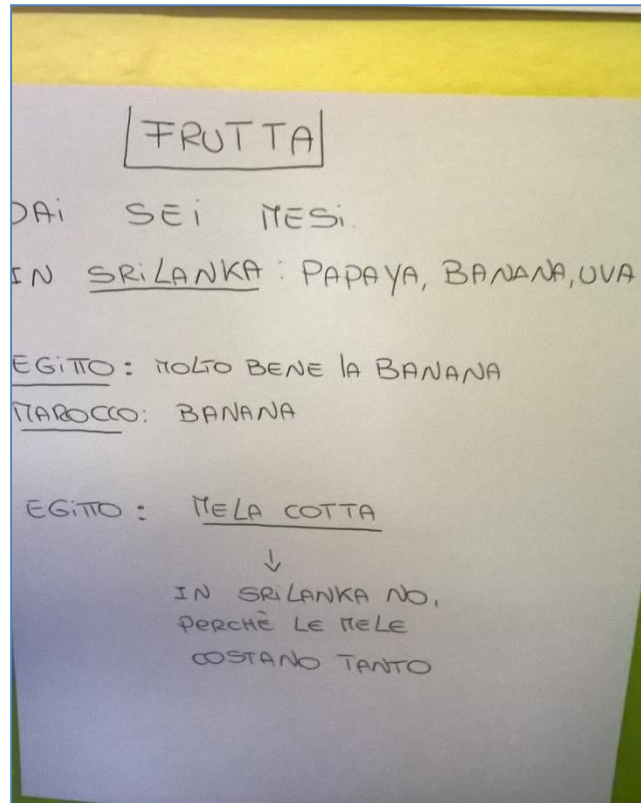 FRUTTA
DAi SEi MESi.
IN SRiLANKA: PAPAYA, BANANA, UVA
EGiTTO: MOLTO BENE lA BANANA
MAROCCO: BANANA
EGiTTO: MELA COTTA
↓
IN SRiLANKA NO,
PERCHÈ LE MELE
COSTANO TANTO